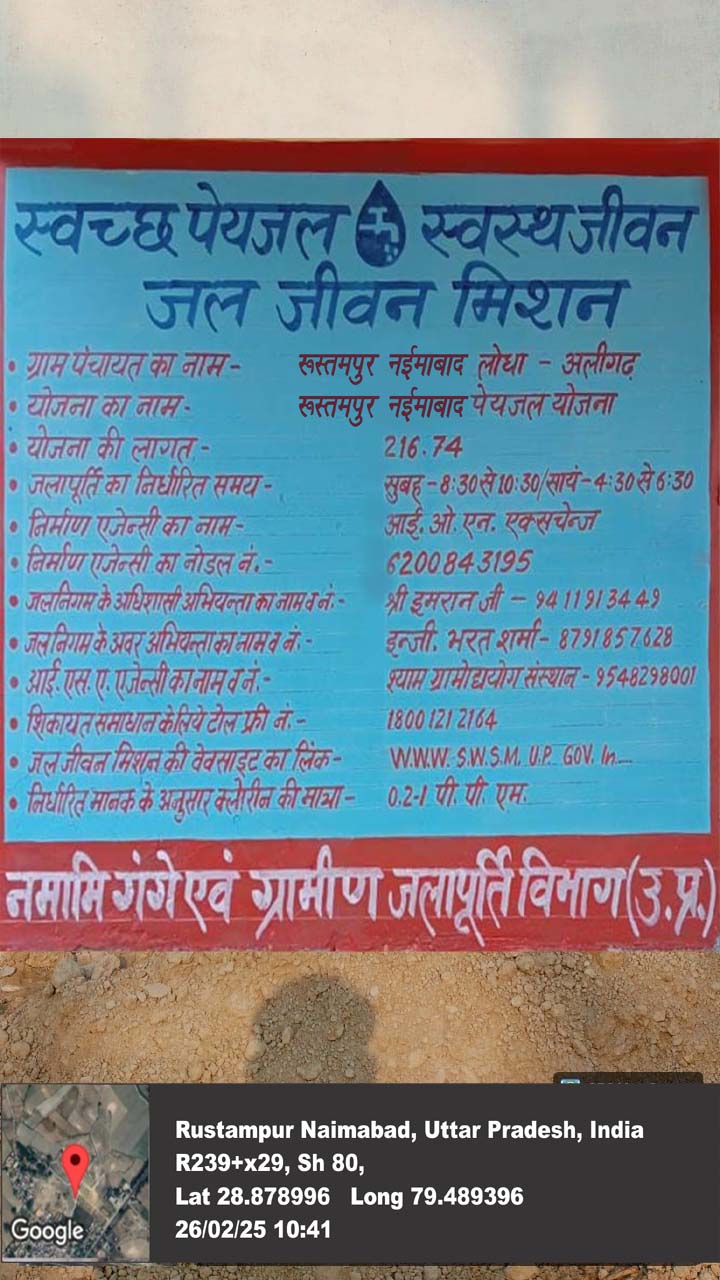 स्वच्छ पेयजल स्वस्थ जीवन
जल जीवन मिशन
• ग्राम पंचायत का नाम - रूस्तमपुर नईमाबाद लोधा - अलीगढ़
• योजना का नाम - रूस्तमपुर नईमाबाद पेयजल योजना
• योजना की लागत - 216.74
• जलापूर्ति का निर्धारित समय - सुबह - 8:30 से 10:30/सायं - 4:30 से 6:30
• निर्माण एजेन्सी का नाम - आई. ओ. एन. एक्सचेन्ज
• निर्माण एजेन्सी का नोडल नं. - 6200843195
• जलनिगम के अधिशासी अभियन्ता का नाम व नं. - श्री इमरान जी - 9411913449
• जलनिगम के अवर अभियन्ता का नाम व नं. - इन्जी. भरत शर्मा - 8791857628
• आई. एस. ए. एजेन्सी का नाम व नं. - श्याम ग्रामोद्ययोग संस्थान - 9548298001
• शिकायत समाधान के लिये टोल फ्री नं. - 1800 121 2164
• जल जीवन मिशन की वेवसाइट का लिंक - W.W.W. S.W.S.M. U.P. GOV. In....
• निर्धारित मानक के अनुसार क्लोरीन की मात्रा - 0.2-1 पी. पी. एम.
नमामि गंगे एवं ग्रामीण जलापूर्ति विभाग (उ.प्र.)
Rustampur Naimabad, Uttar Pradesh, India
R239+x29, Sh 80,
Lat 28.878996 Long 79.489396
26/02/25 10:41
Google